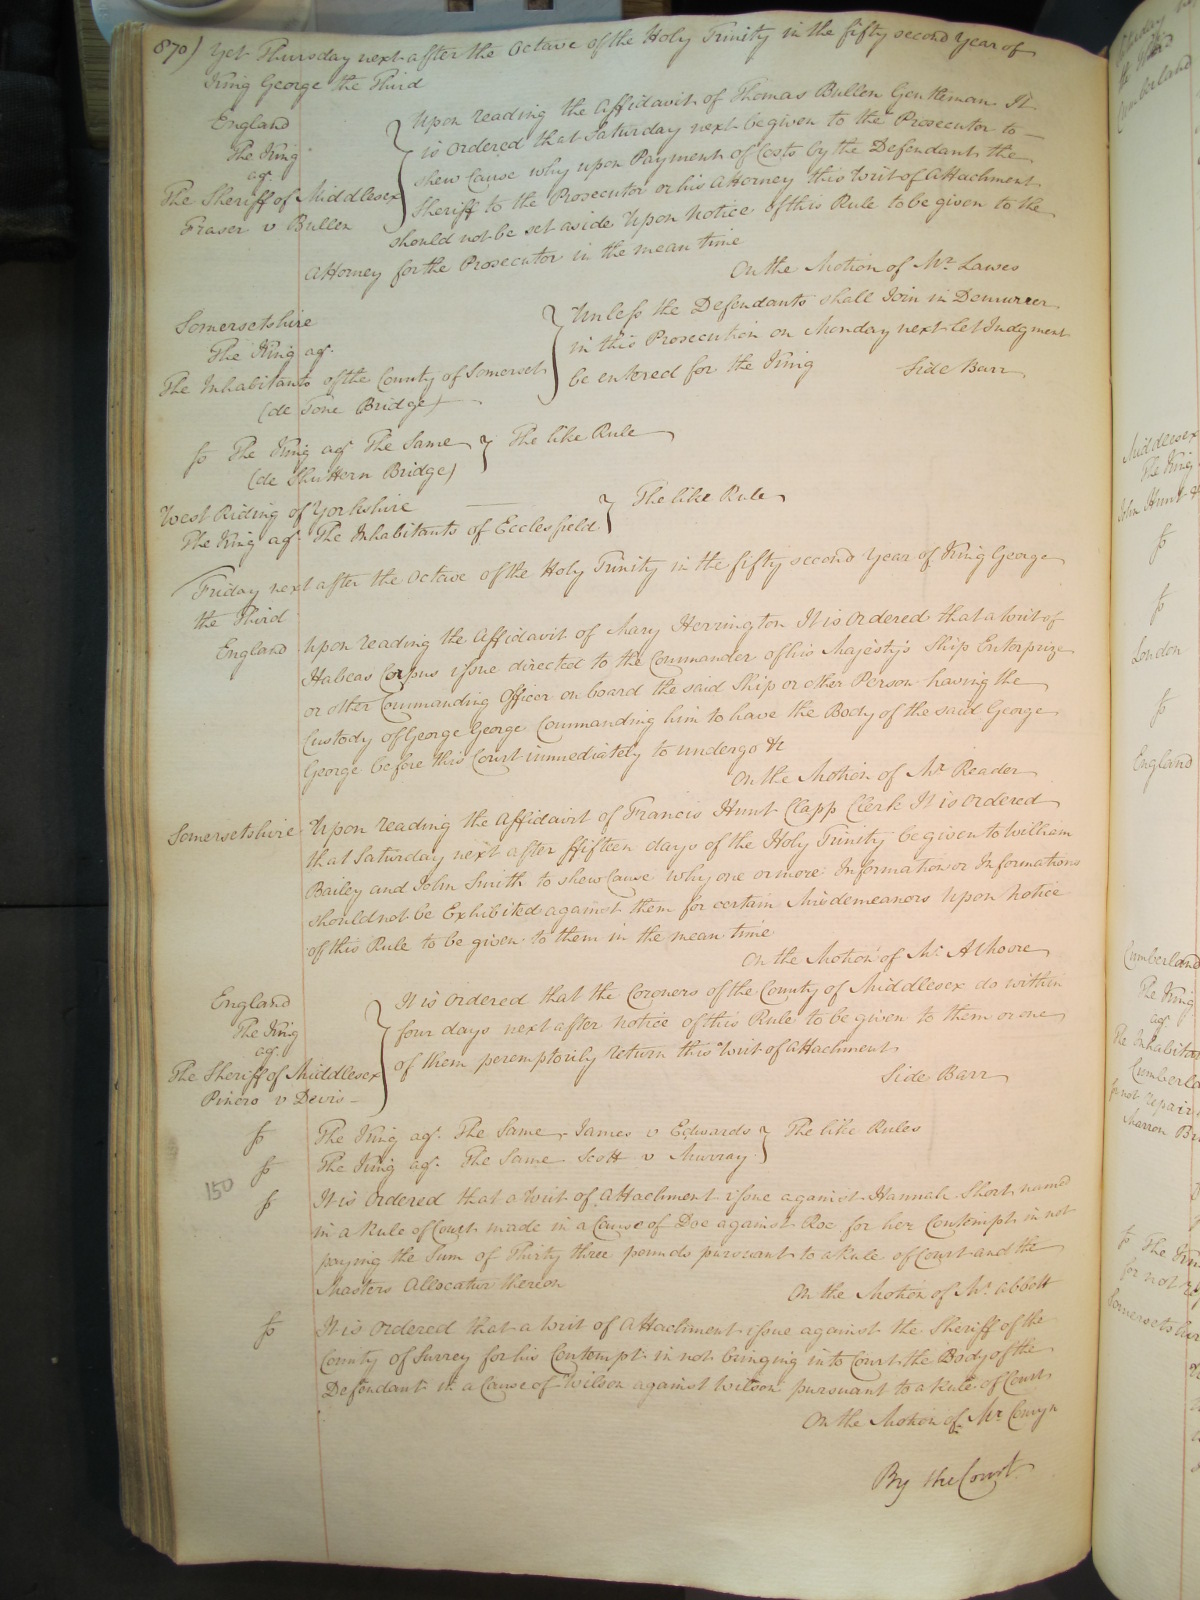 870) Yet Thursday next after the Octave of the Holy Trinity in the fifty second Year of
King George the Third
England
The King
agt
The Sheriff of Middlesex
Fraser v Bullen
Upon reading the Affidavit of Thomas Bullen Gentleman It
is Ordered that Saturday next be given to the Prosecutor to
shew Cause why upon Payment of Costs by the Defendant the
Sheriff to the Prosecutor or his Attorney this Writ of Attachment
should not be set aside Upon Notice of this Rule to be given to the
Attorney for the Prosecutor in the mean time
On the Motion of Mr. Lawes
Somersetshire
The King agt.
The Inhabitants of the County of Somerset
(de Tone Bridge)
Unless the Defendants shall Join in Demurrer
in this Prosecution on Monday next let Judgment
be entered for the King
Side Barr
fo The King agt The Same } The like Rule
(de Shuttern Bridge)
West Riding of Yorkshire
The King agt The Inhabitants of Ecclesfield } The like Rule
Friday next after the Octave of the Holy Trinity in the fifty second Year of King George
the Third
England Upon reading the Affidavit of Mary Herrington It is Ordered that a Writ of
Habeas Corpus issue directed to the Commander of his Majesty's Ship Enterprize
or other Commanding Officer on board the said Ship or other Person having the
Custody of George George Commanding him to have the Body of the said George
George before this Court immediately to undergo &c
On the Motion of Mr Reader
Somersetshire Upon reading the Affidavit of Francis Hunt Clapp Clerk It is Ordered
that Saturday next after fifteen days of the Holy Trinity be given to William
Bailey and John Smith to shew Cause why one or more Information or Informations
should not be Exhibited against them for certain Misdemeanors Upon Notice
of this Rule to be given to them in the mean time
On the Motion of Mr. A Moore
England
The King
agt.
The Sheriff of Middlesex
Pinero v Devis
It is Ordered that the Coroners of the County of Middlesex do within
four days next after Notice of this Rule to be given to them or one
of them peremptorily return this Writ of Attachment
Side Barr
fo The King agt. The Same James v Edwards } The like Rules
fo The King agt. The Same Scott v Murray
150
fo It is Ordered that a Writ of Attachment issue against Hannah Short named
in a Rule of Court made in a Cause of Doe against Roe for her Contempt in not
paying the Sum of Thirty three pounds pursuant to a Rule of Court and the
Masters Allocatur thereon
On the Motion of Mr. Abbott
fo It is Ordered that a Writ of Attachment issue against the Sheriff of the
County of Surrey for his Contempt in not bringing into Court the Body of the
Defendant in a Cause of Wilson against Wilson pursuant to a Rule of Court
On the Motion of Mr Comyn
By the Court
Cumberland
Middlesex
The King
John Hunt &
fo
fo
London
fo
England
Cumberland
The King
agt
The Inhabitan
Cumberla
for not repair
fo The Kin
for not re
Somersetshir